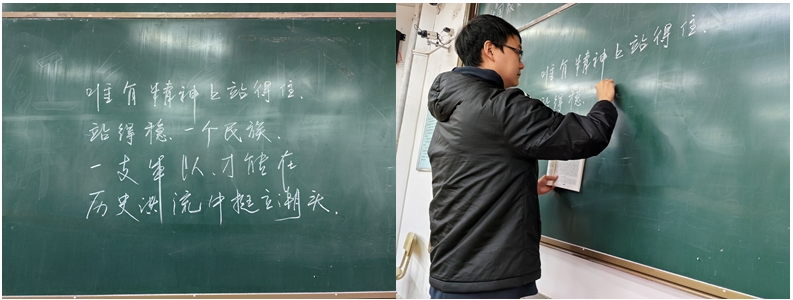 唯有精神上站得住、
站得稳、一个民族、
一支军队、才能在
历史洪流中挺立潮头.
唯有精神上站得住、
站得稳、